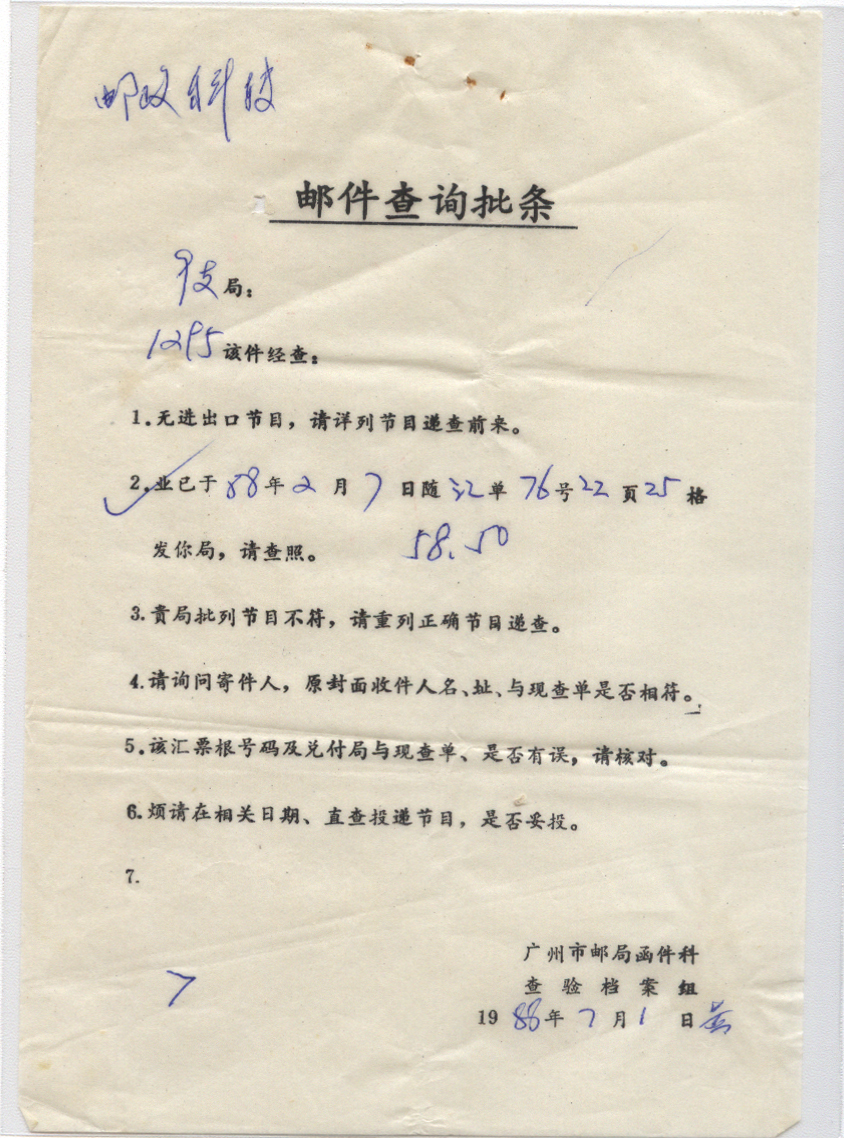 邮政科技
邮件查询批条
支局：
1295该件经查：
1.无进出口节目，请详列节目递查前来。
2.业已于88年2月7日随汇单76号22页25格
发你局，请查照。 58.50
3.贵局批列节目不符，请重列正确节目递查。
4.请询问寄件人，原封面收件人名、址、与现查单是否相符。
5.该汇票根号码及兑付局与现查单、是否有误，请核对。
6.烦请在相关日期、直查投递节目，是否妥投。
7.
广州市邮局函件科
查验档案组
1988年7月1日